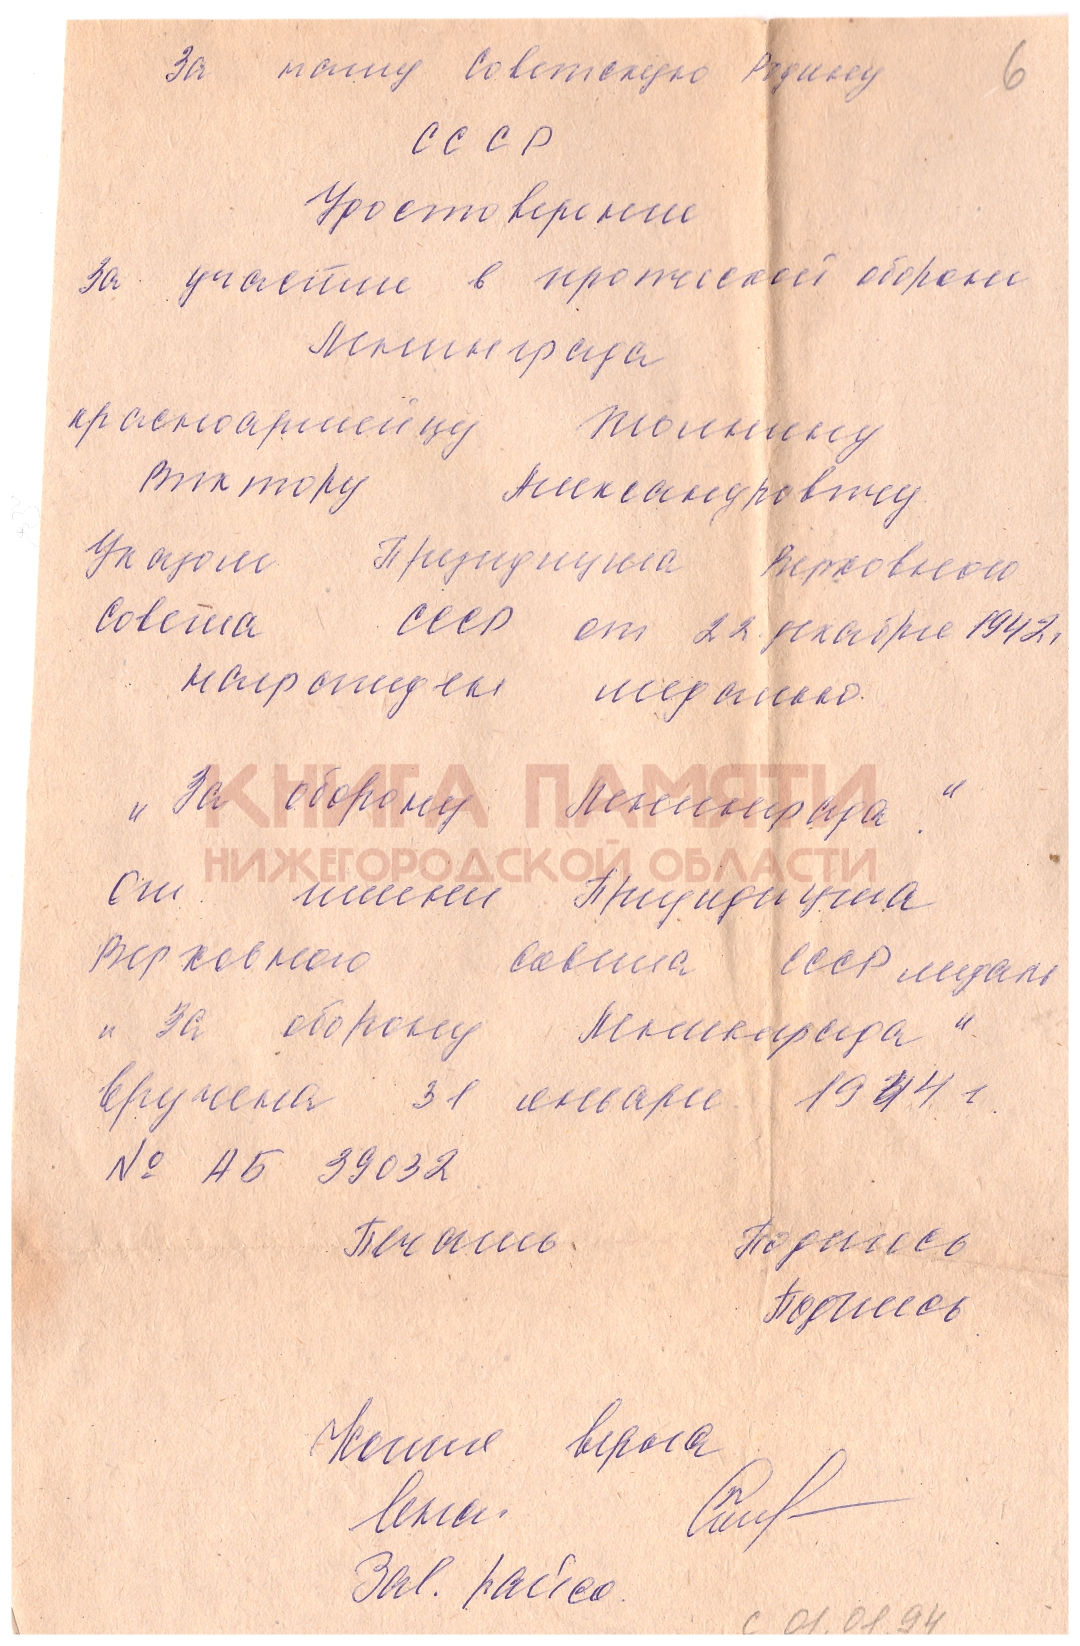 За нашу Советскую Родину
6
СССР
Удостоверение
За участие в героической обороне
Ленинграда
красноармейцу
Виктору Александровичу
Указом Президиума Верховного
Совета СССР от 22 декабря 1942г
награжден медалью
„За оборону Ленинграда."
КНИГА ПАМЯТИ
НИЖЕГОРОДСКОЙ ОБЛАСТИ
От имени Президиума
Верховного Совета СССР медаль
„За оборону Ленинграда"
вручена 31 января 1944 г.
№ АБ 39032
Печать Подпись
Подпись
Копия верна
Зав. райсо.
с 01.01.94